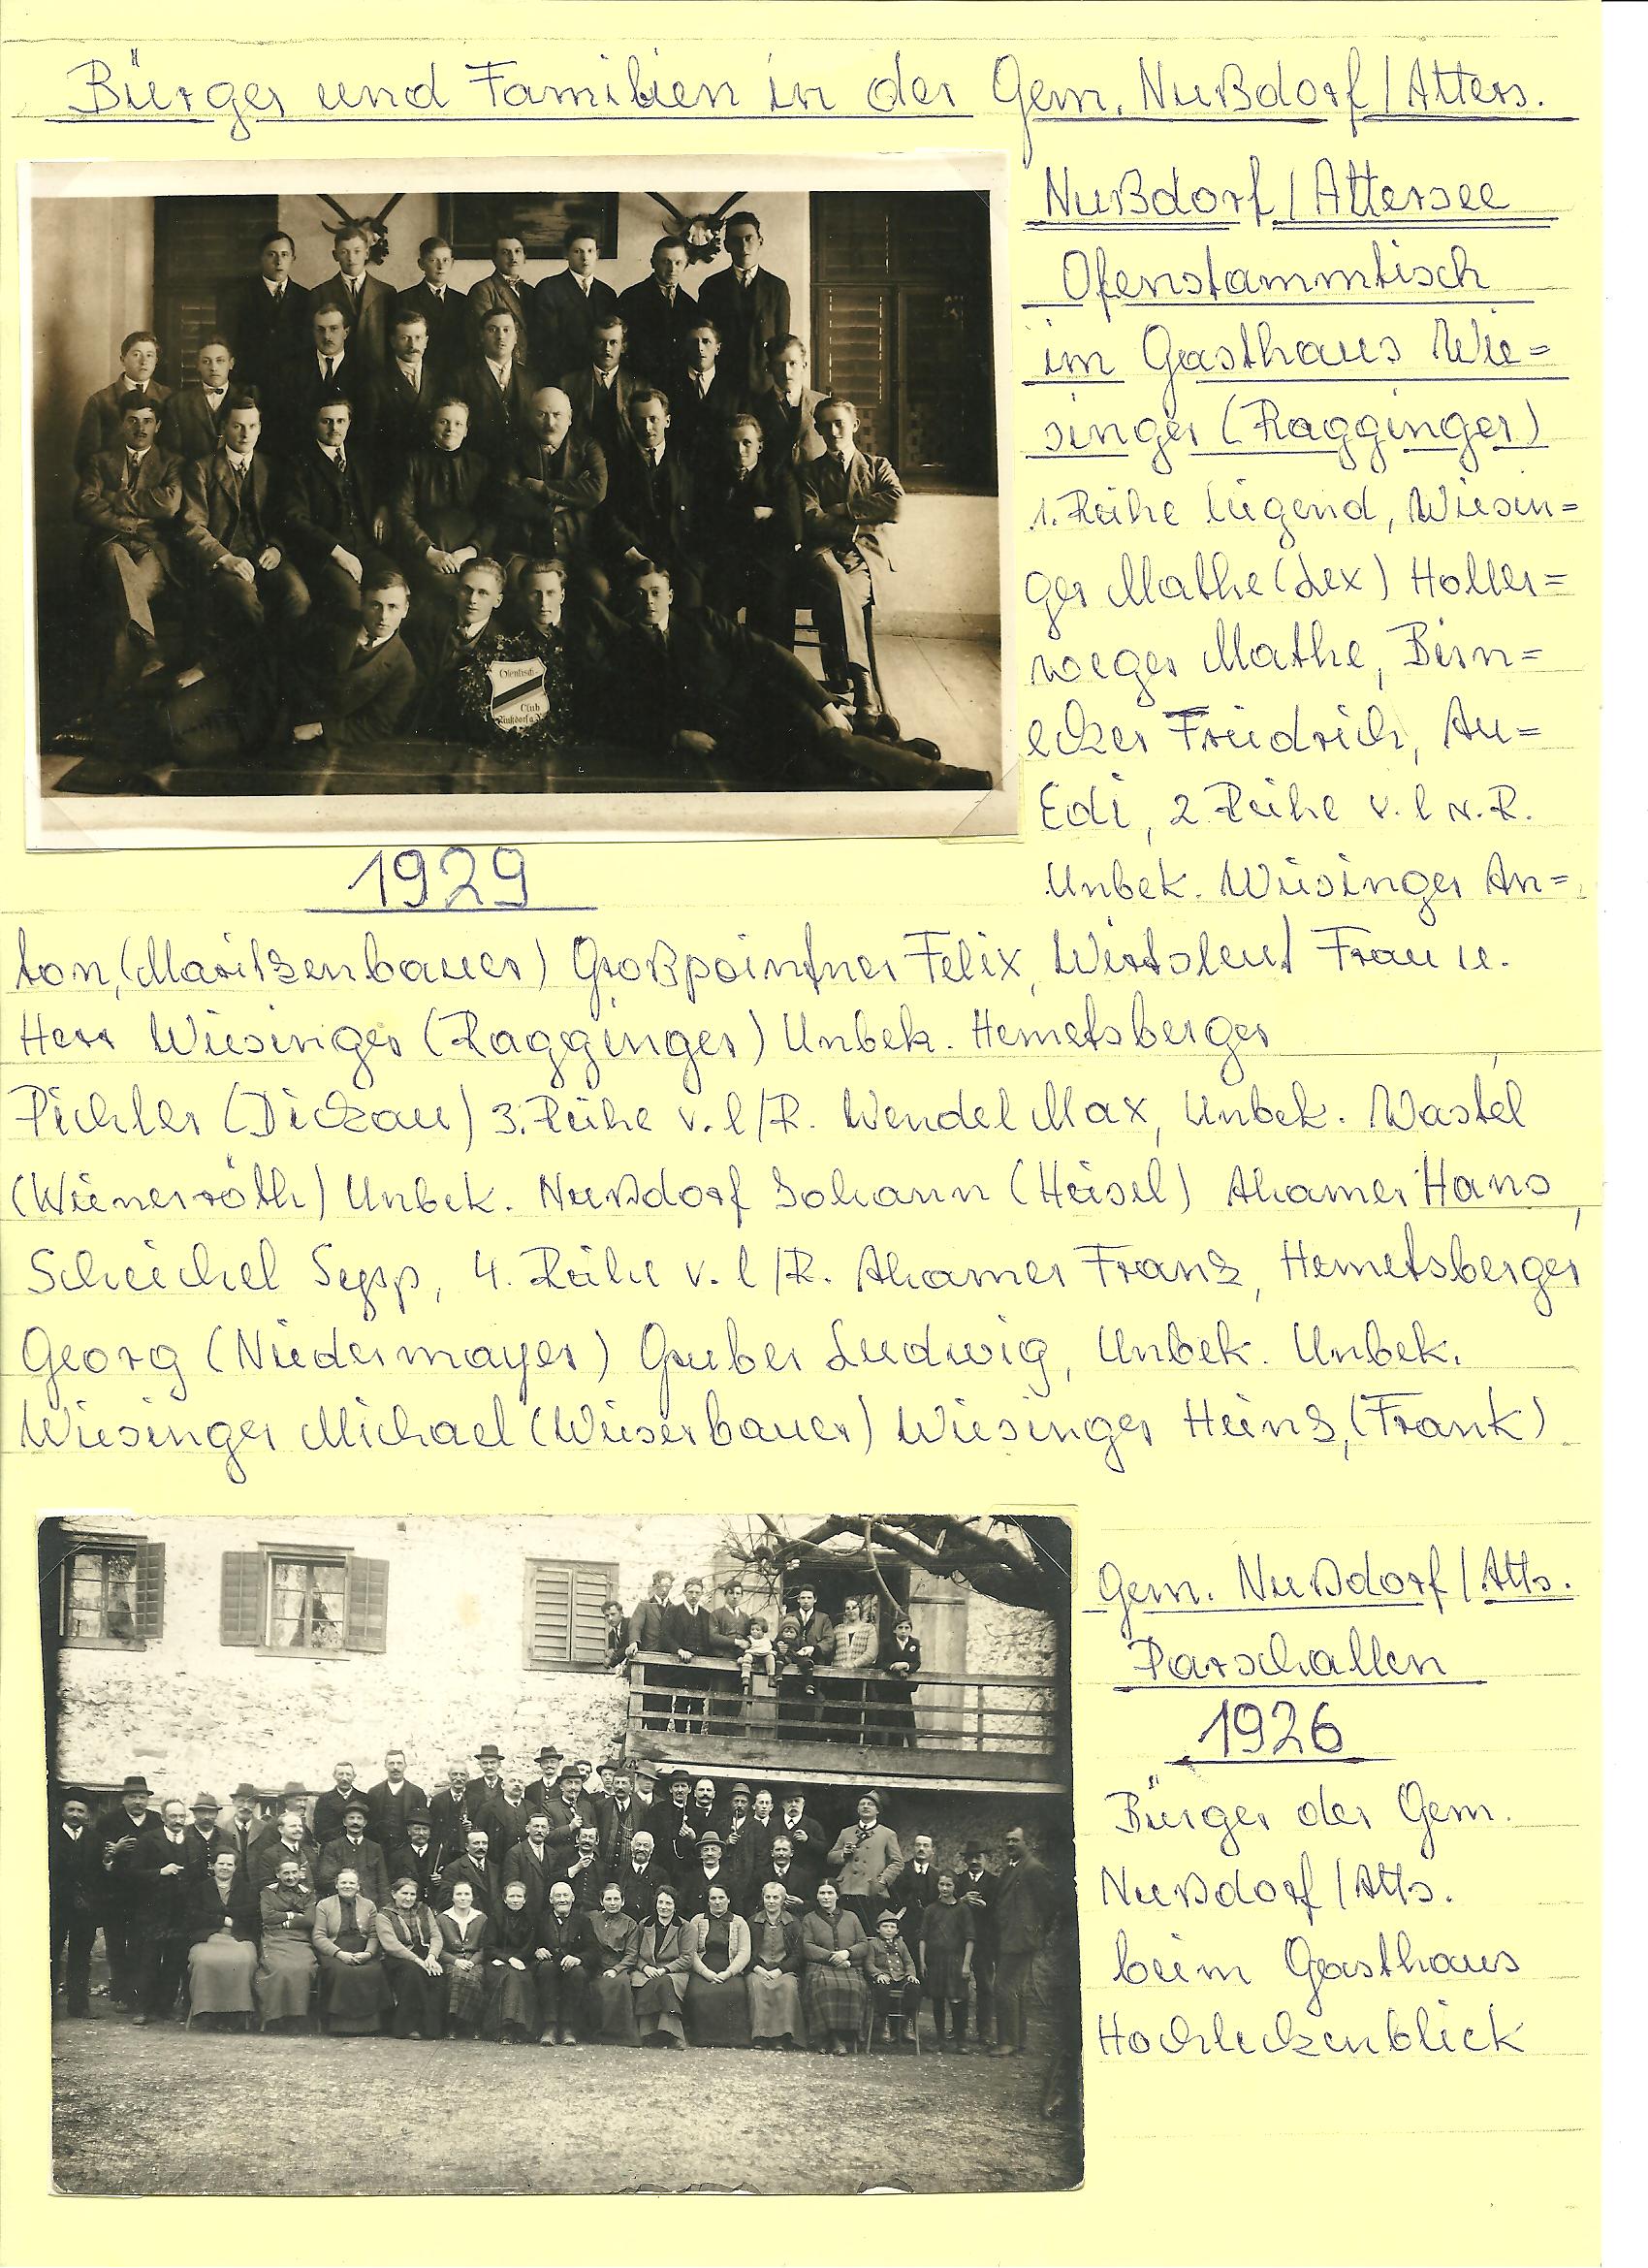 Bürger und Familien in der Gem. Nußdorf/Atters.
Nußdorf/Attersee
Ofenstammtisch
im Gasthaus Wie=
singer (Ragginger)
1. Reihe liegend, Wiesin=
ger Mathe (Lex) Holler=
weger Mathe, Birn=
ecker Friedrich, Au=
Edi, 2 Reihe v. l N. R.
Unbek. Wiesinger An=
Ofentisch-
Club
Nußdorf a. A.
1929
ton, (Maritzenbauer) Großpointner Felix, Wirtsleut Frau u.
Herr Wiesinger (Ragginger) Unbek. Hemetsberger
Pichler (Dickau) 3. Reihe v. l/R. Wendel Max, Unbek. Wastel
(Wienerröth) Unbek. Nußdorf Johann (Heisel) Ahamer Hans,
Scheichel Sepp, 4. Reihe v. l/R. Ahamer Franz, Hemetsberger
Georg (Niedermayer) Gruber Ludwig, Unbek. Unbek.
Wiesinger Michael (Wieserbauer) Wiesinger Heinz, (Frank)
Gem. Nußdorf/Atts.
Parschallen
1926
Bürger der Gem.
Nußdorf/Atts.
beim Gasthaus
Hochleckenblick